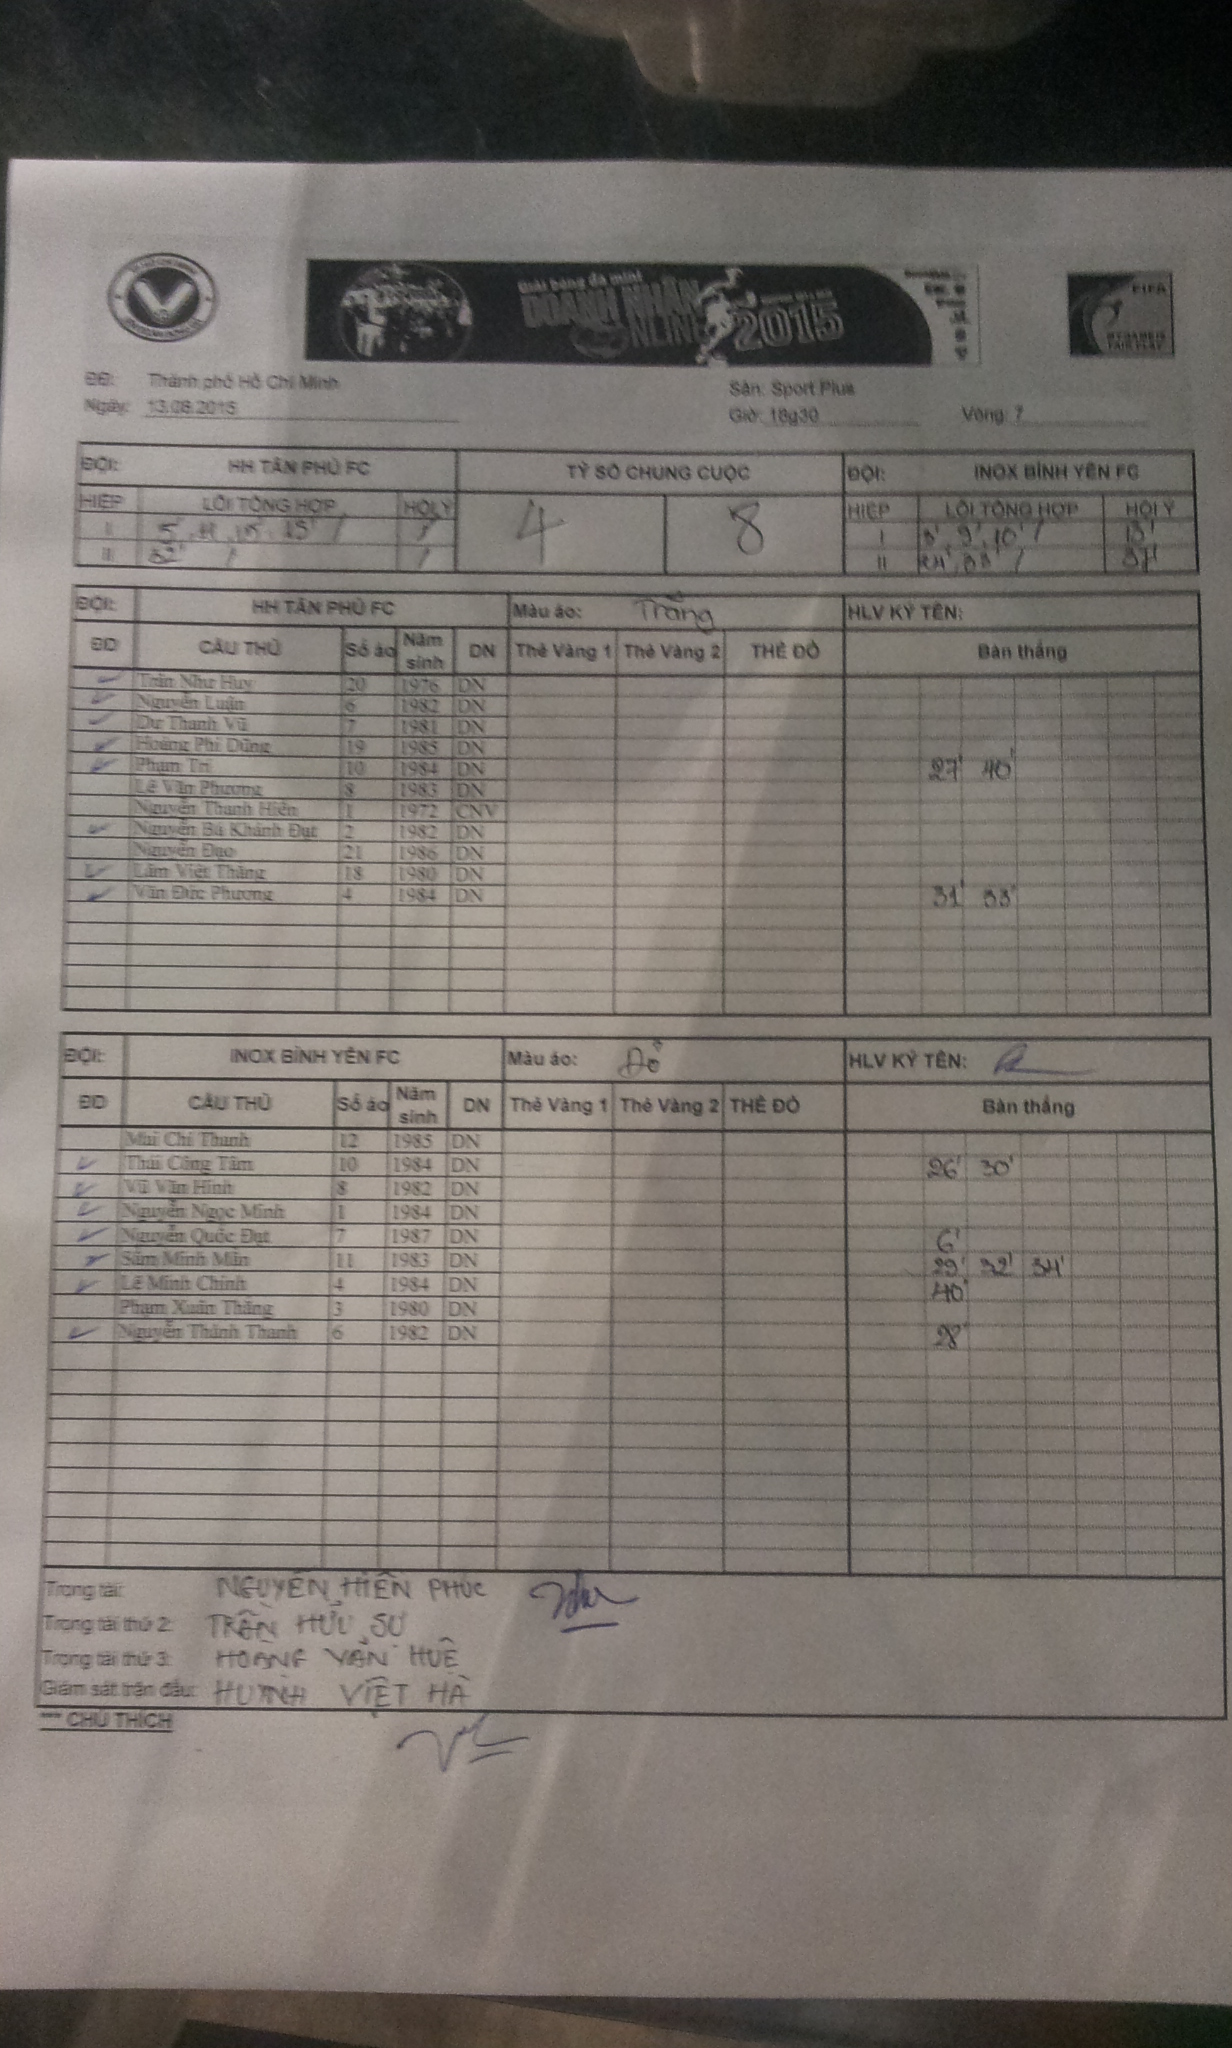 Giải bóng đá mini
DOANH NHÂN
ONLINE 2015
FIFA
ĐĐ: Thành phố Hồ Chí Minh Sân: Sport Plus
Ngày: 13.08.2015 Giờ: 18g30 Vòng: 7
ĐỘI: HH TÂN PHÚ FC TỶ SỐ CHUNG CUỘC ĐỘI: INOX BÌNH YÊN FC
HIỆP LỖI TỔNG HỢP HỘI Ý 4 8 HIỆP LỖI TỔNG HỢP HỘI Ý
I 5' 15' / / I 9', 10' / 13'
II 32' / / II / 37'
ĐỘI: HH TÂN PHÚ FC Màu áo: Trắng HLV KÝ TÊN:
ĐD CẦU THỦ Số áo Năm sinh DN Thẻ Vàng 1 Thẻ Vàng 2 THẺ ĐỎ Bàn thắng
Trần Như Huy 20 1976 DN
Nguyễn Luận 6 1982 DN
Dư Thanh Vũ 7 1981 DN
Hoàng Phi Dũng 19 1985 DN
Phạm Trí 10 1984 DN 27' 40'
Lê Văn Phương 8 1983 DN
Nguyễn Thanh Hiền 1 1972 CNV
Nguyễn Bá Khánh Đạt 2 1982 DN
Nguyễn Đạo 21 1986 DN
Lâm Việt Thắng 18 1980 DN
Văn Đức Phương 4 1984 DN 31' 33'
ĐỘI: INOX BÌNH YÊN FC Màu áo: Đỏ HLV KÝ TÊN:
ĐD CẦU THỦ Số áo Năm sinh DN Thẻ Vàng 1 Thẻ Vàng 2 THẺ ĐỎ Bàn thắng
Mai Chí Thanh 12 1985 DN
Thái Công Tâm 10 1984 DN 26' 30'
Vũ Văn Hinh 8 1982 DN
Nguyễn Ngọc Minh 1 1984 DN
Nguyễn Quốc Đạt 7 1987 DN 6'
Sâm Minh Mẫn 11 1983 DN 29' 32' 34'
Lê Minh Chính 4 1984 DN 40'
Phạm Xuân Thắng 3 1980 DN
Nguyễn Thành Thanh 6 1982 DN 28'
Trọng tài: NGUYỄN HIỀN PHÚC
Trọng tài thứ 2: TRẦN HỮU SƯ
Trọng tài thứ 3: HOÀNG VĂN HUÊ
Giám sát trận đấu: HUỲNH VIỆT HÀ
*** CHÚ THÍCH